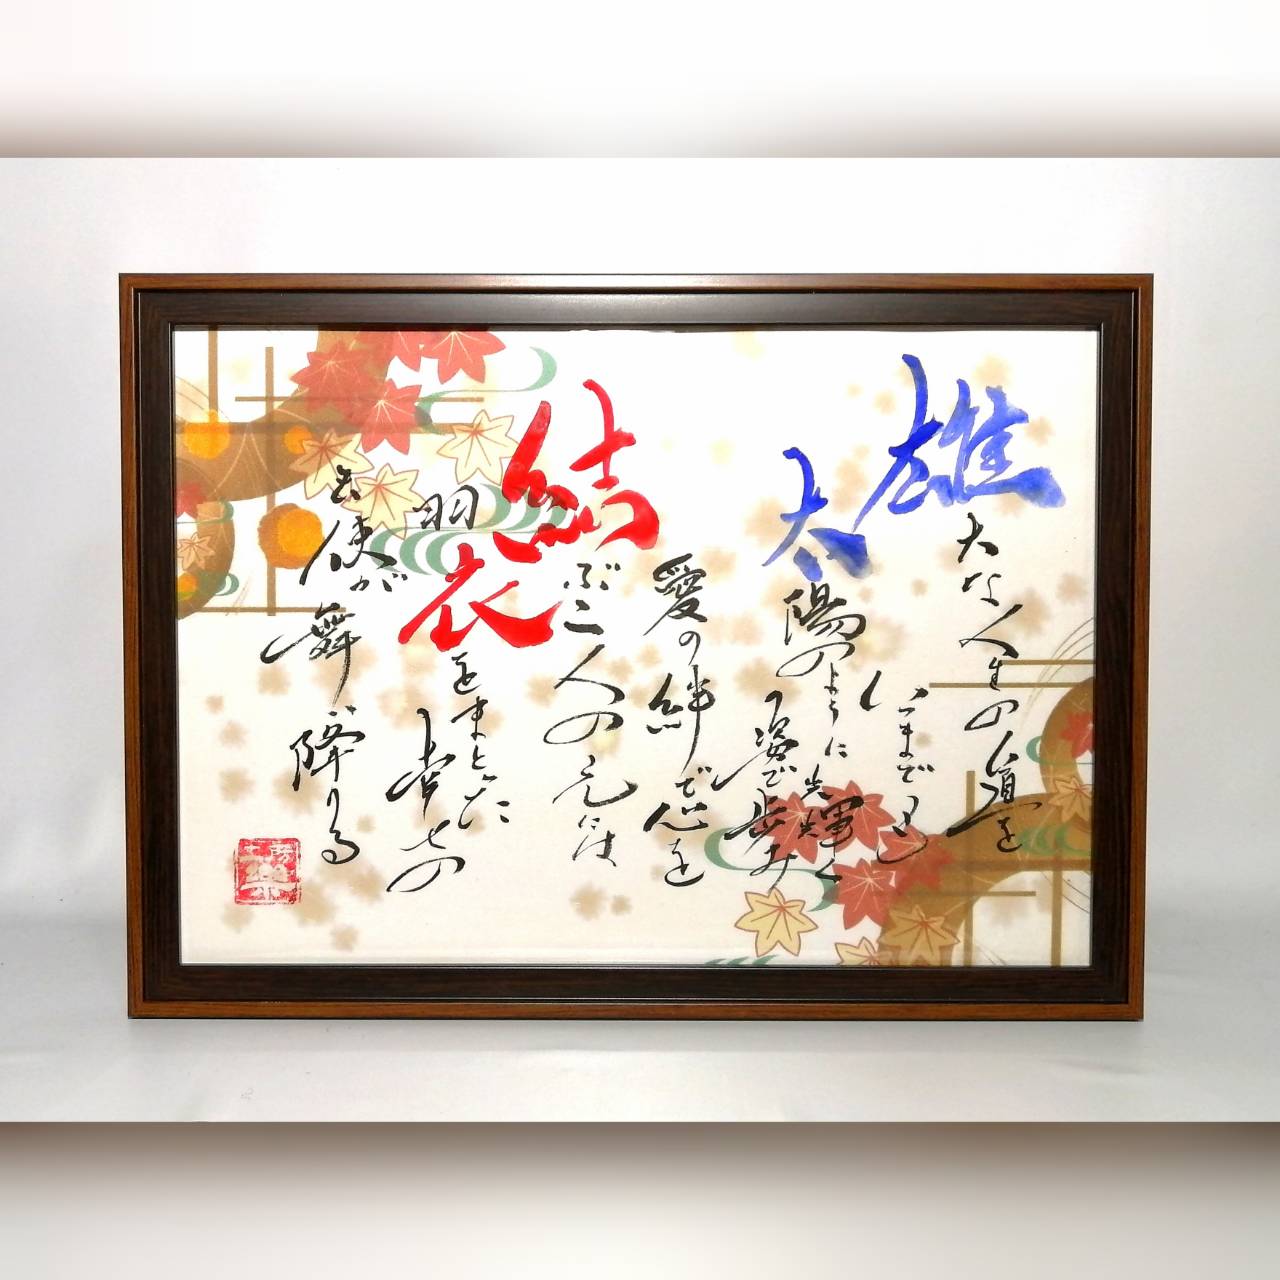 雄大な人生の道を
いつまでも
太陽のように光輝く
の姿で歩み
愛の絆で心を
結ぶ二人の元には
羽衣をまとった
幸せの
天使が舞い降りる